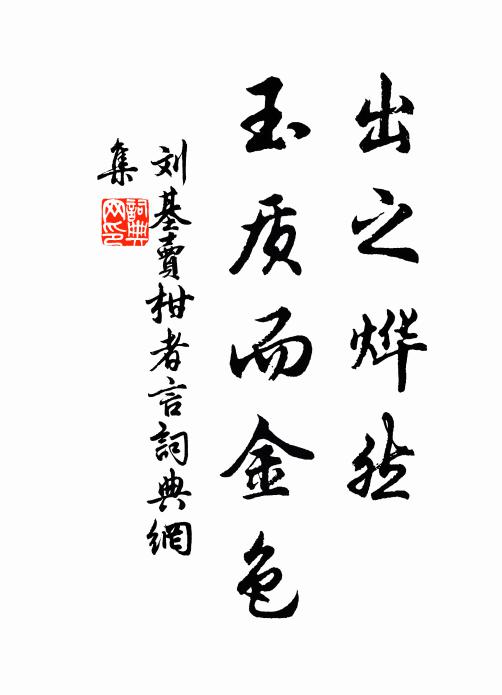 出之烨然
玉质而金色
刘基賣柑者言詞典網
集
詞典网印